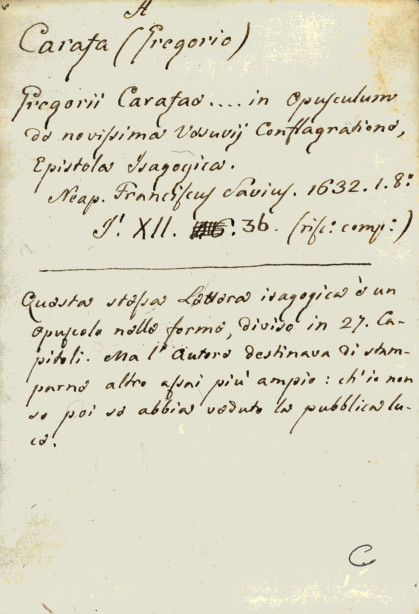 A
Carafa (Gregorio)
Gregorii Carafae .... in Opusculum
de novissima Vesuvij Conflagratione,
Epistola Isagogica.
Neap. Franciscus Savius. 1632. 1. 8:
XII. 36. (risc: comp:)
Questa stessa Lettera isagogica è un
Opuscolo nelle forme, diviso in 27. Ca-
pitoli. Ma l'Autore destinava di stam-
parne altro assai più ampio: ch'io non
so poi se abbia veduto la pubblica lu-
ce.
C